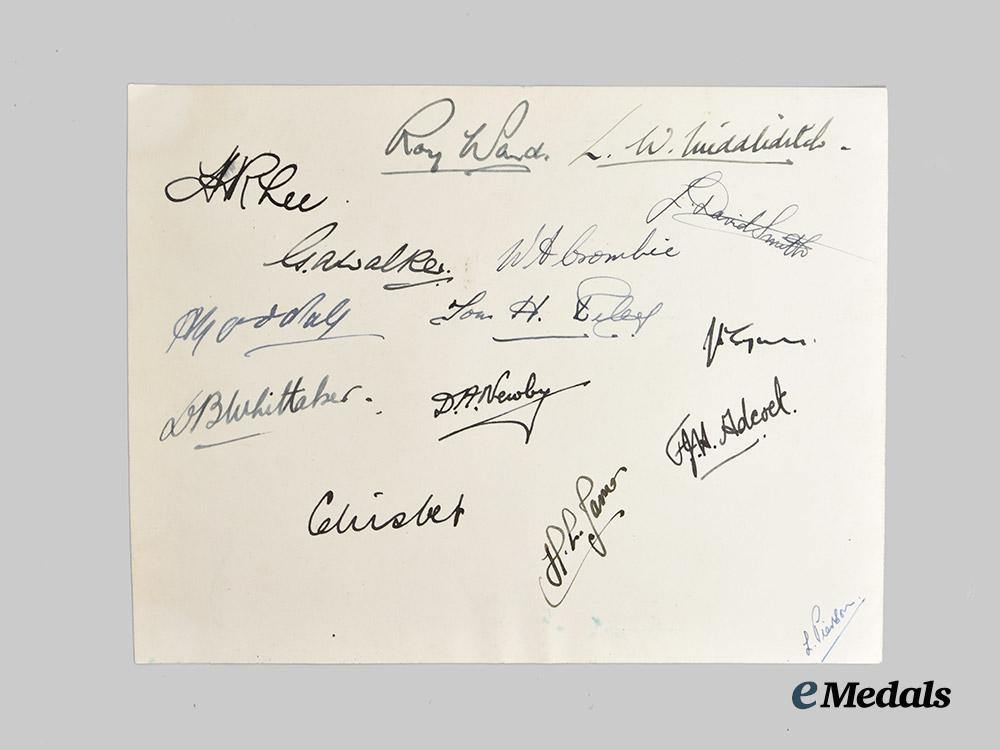 Roy Ward.
L. W. Middleditch.
H R Lee
L. David Smith
G. A. Walker.
W A Crombie
Tom H. Riley
D B Whittaker.
D. A. Newby
F. J. H. Adcock.
H. L. James
L. Pierson.
eMedals